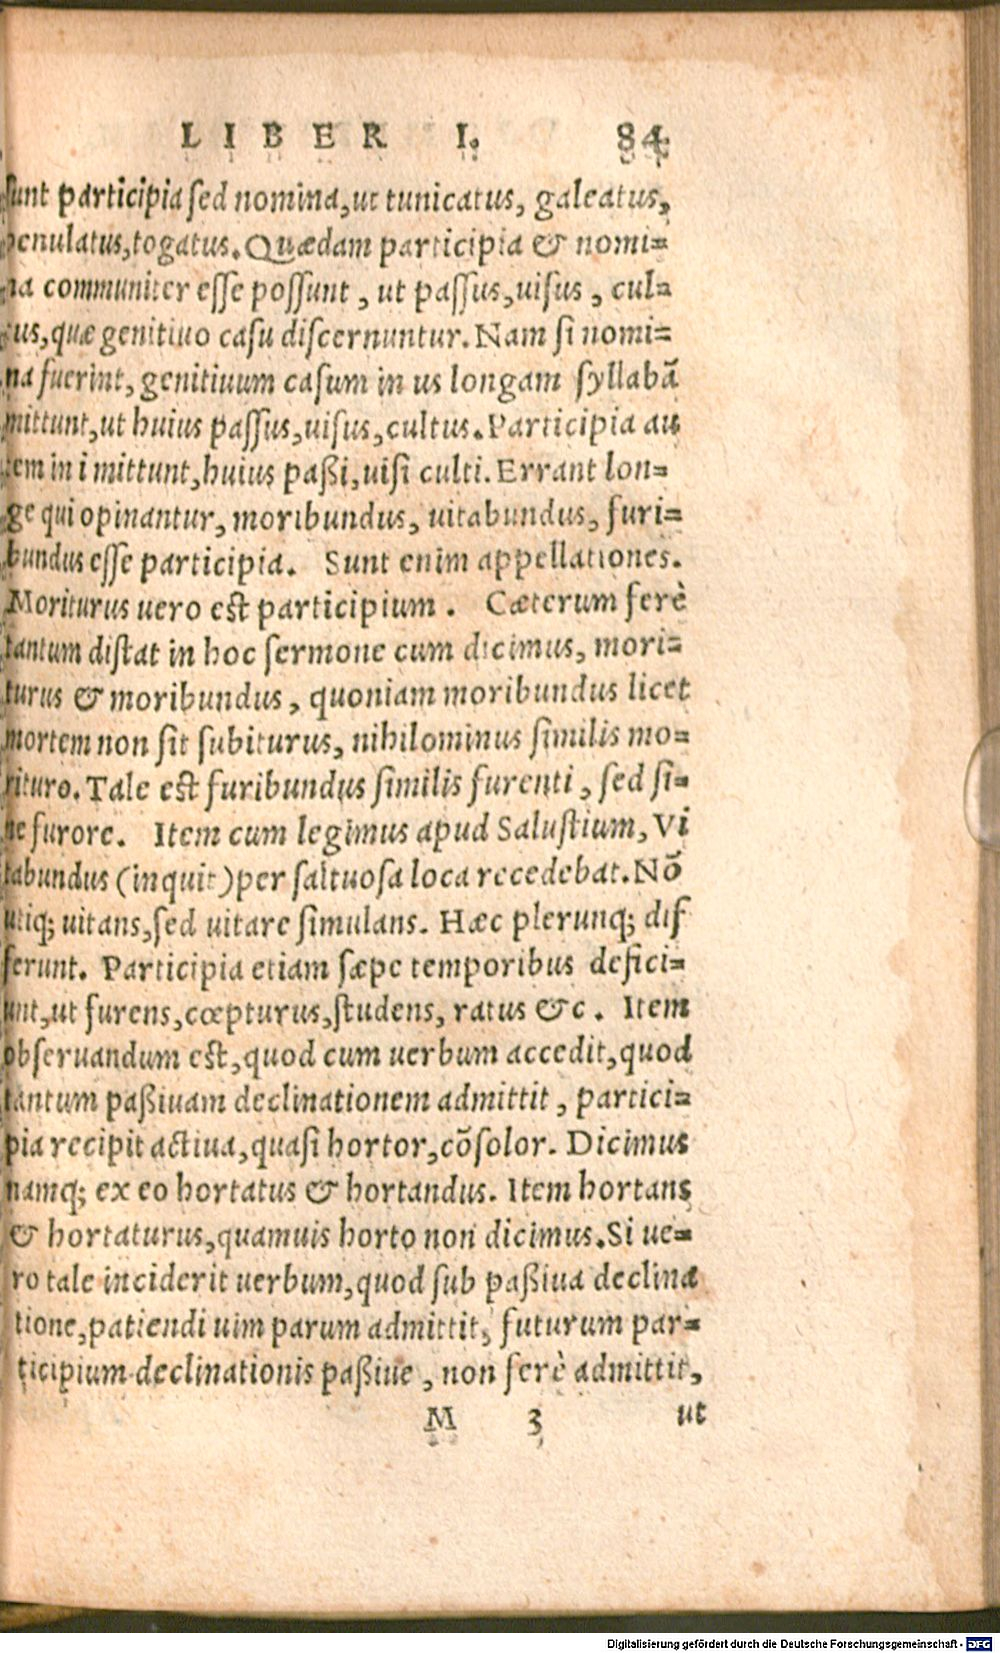 LIBER I. 84
sunt participia sed nomina, ut tunicatus, galeatus,
penulatus, togatus. Quædam participia & nomi=
na communiter esse possunt, ut passus, uisus, cul=
tus, quæ genitiuo casu discernuntur. Nam si nomi=
na fuerint, genitiuum casum in us longam syllabã
mittunt, ut huius passus, uisus, cultus. Participia au
tem in i mittunt, huius paßi, uisi culti. Errant lon=
ge qui opinantur, moribundus, uitabundus, furi=
bundus esse participia. Sunt enim appellationes.
Moriturus uero est participium. Cæterum ferè
tantum distat in hoc sermone cum dicimus, mori=
turus & moribundus, quoniam moribundus licet
mortem non sit subiturus, nihilominus similis mo=
rituro. Tale est furibundus similis furenti, sed si=
ne furore. Item cum legimus apud Salustium, Vi
tabundus (inquit) per saltuosa loca recedebat. Nõ
utiq; uitans, sed uitare simulans. Hæc plerunq; dif
ferunt. Participia etiam sæpe temporibus defici=
unt, ut furens, cœpturus, studens, ratus &c. Item
obseruandum est, quod cum uerbum accedit, quod
tantum paßiuam declinationem admittit, partici=
pia recipit actiua, quasi hortor, cõsolor. Dicimus
namq; ex eo hortatus & hortandus. Item hortans
& hortaturus, quamuis horto non dicimus. Si ue=
ro tale inciderit uerbum, quod sub paßiua declina
tione, patiendi uim parum admittit, futurum par=
ticipium declinationis paßiue, non ferè admittit,
M 3 ut
Digitalisierung gefördert durch die Deutsche Forschungsgemeinschaft - DFG